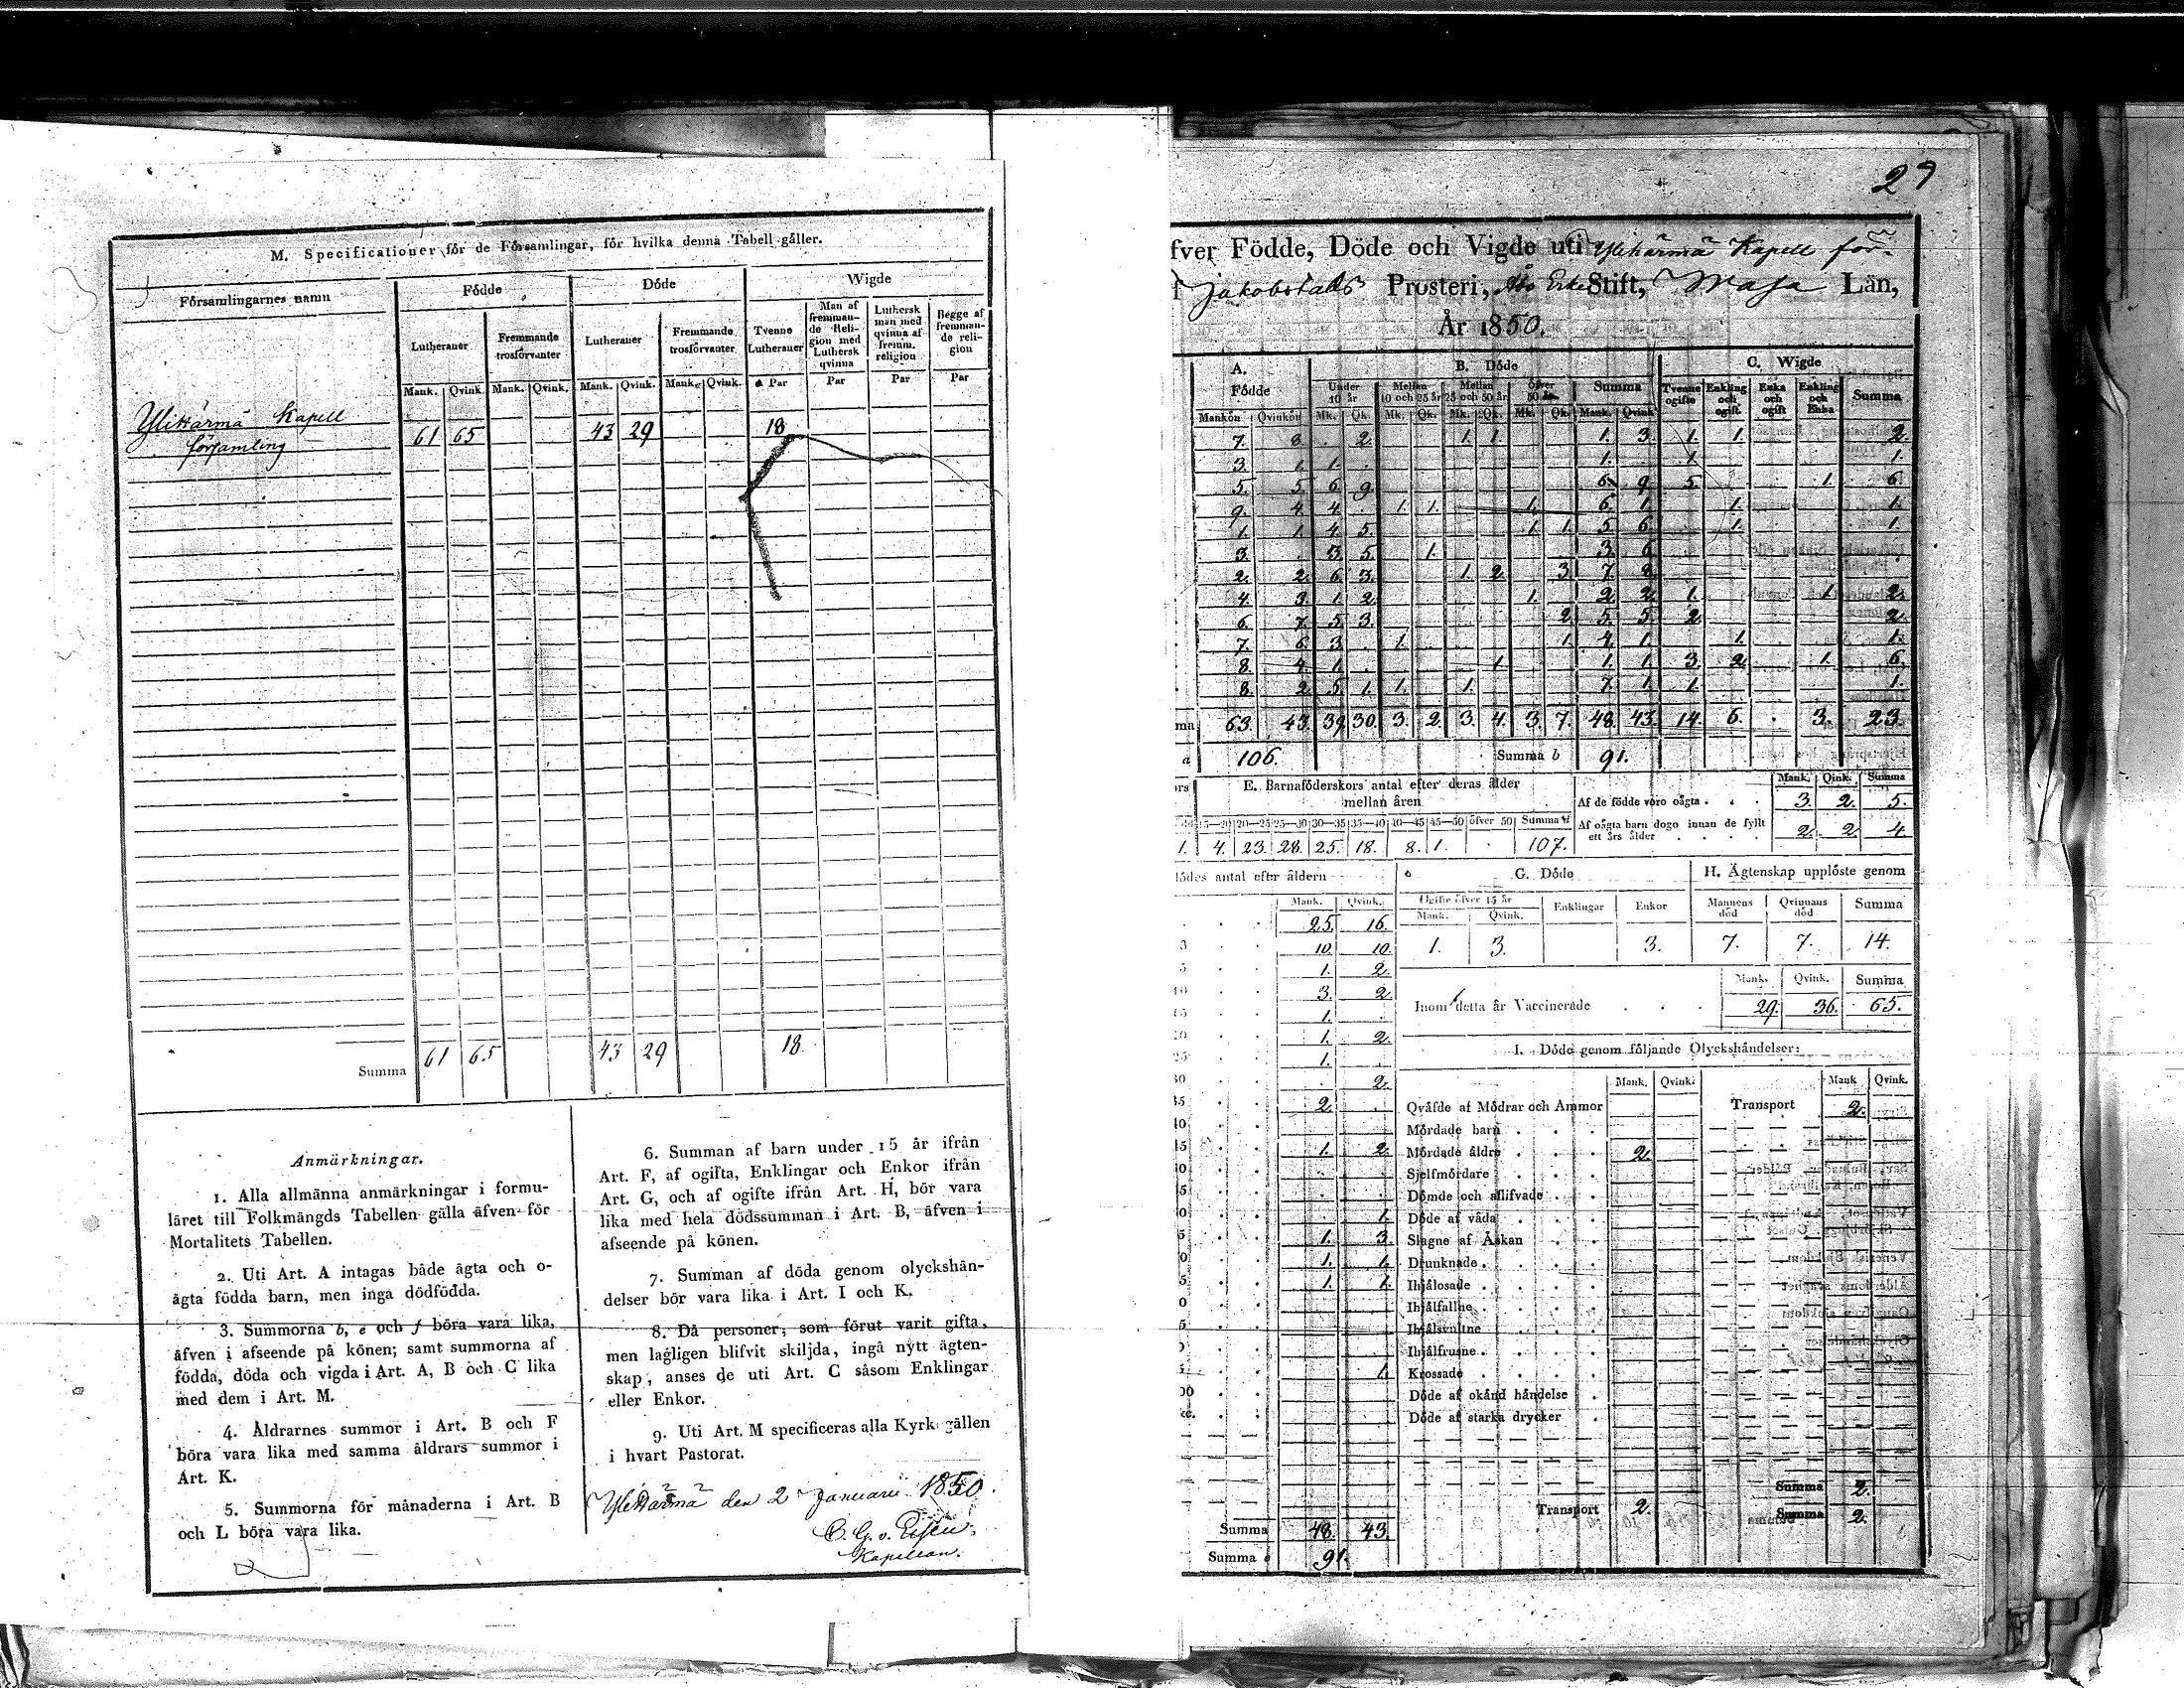 M. Specificationer för de Församlingar, för hvilka denna Tabell gäller.
Församlingarnes namn
Födde
Döde
Wigde
Lutheraner
Fremmande trosförvanter
Lutheraner
Fremmande trosförvanter
Tvenne Lutheraner
Man af fremmande Religion med Luthersk qvinna
Luthersk man med qvinna af fremm. religion
Begge af fremmande religion
Mank. Qvink. Mank. Qvink. Mank. Qvink. Mank. Qvink. Par Par Par Par
Ylihärmä Kapell
församling
61 65 43 29 18
Summa 61 65 43 29 18
Anmärkningar.
1. Alla allmänna anmärkningar i formu-
läret till Folkmängds Tabellen gälla äfven för
Mortalitets Tabellen.
2. Uti Art. A intagas både ägta och o-
ägta födda barn, men inga dödfödda.
3. Summorna b, e och f böra vara lika,
äfven i afseende på könen; samt summorna af
födda, döda och vigda i Art. A, B och C lika
med dem i Art. M.
4. Åldrarnes summor i Art. B och F
böra vara lika med samma åldrars summor i
Art. K.
5. Summorna för månaderna i Art. B
och L böra vara lika.
6. Summan af barn under 15 år ifrån
Art. F, af ogifta, Enklingar och Enkor ifrån
Art. G, och af ogifte ifrån Art. H, bör vara
lika med hela dödssumman i Art. B, äfven i
afseende på könen.
7. Summan af döda genom olyckshän-
delser bör vara lika i Art. I och K.
8. Då personer, som förut varit gifta,
men lagligen blifvit skiljda, ingå nytt ägten-
skap, anses de uti Art. C såsom Enklingar
eller Enkor.
9. Uti Art. M specificeras alla Kyrkogällen
i hvart Pastorat.
Ylihärmä den 2 Januarii 1850.
Kapellan.
29
fver Födde, Döde och Vigde uti Ylihärmä Kapell för-
Jakobstads Prosteri, Åbo Erke Stift, Wasa Län,
År 1850.
A. Födde
B. Döde
C. Wigde
Under 10 år
Mellan 10 och 25 år
Mellan 25 och 50 år
Öfver 50 år
Summa
Tvenne ogifte
Enkling och ogift
Enka och ogift
Enkling och Enka
Summa
Mankön Qvinkön Mk. Qk. Mk. Qk. Mk. Qk. Mk. Qk. Mank. Qvink
7. 8 . 2. 1. 1. 1. 3. 1. 1. 2.
3. 1. 1. . 1. . 1. 1.
5. 5. 6. 9. 6. 9. 5. 1. 6.
9. 4 4. . 1. 1. 1. 6. 1. 1. 1.
1. 1. 4. 5. 1. 1. 5. 6. 1. 1.
3. . 3. 5. 1. 3. 6. .
2. 2. 6. 3. 1. 2. 3. 7. 8.
4. 3. 1. 2. 1. 2. 2. 1. 1. 2.
6. 7. 5. 3. 2. 5. 5. 2. 2.
7. 6. 3. . 1. 1. 4. 1. 1. 1.
8. 4. 1. . 1. 1. 1. 3. 2. 1. 6.
8. 2. 5. 1. 1. 1. 7. 1. 1. 1.
ma 63. 43. 39. 30. 3. 2. 3. 4. 3. 7. 48. 43. 14. 6. . 3. 23.
a 106. Summa b 91.
E. Barnaföderskors antal efter deras ålder
mellan åren
15—20 20—25 25—30 30—35 35—40 40—45 45—50 öfver 50 Summa
1. 4. 23. 28. 25. 18. 8. 1. . 107.
Mank. Qink. Summa
Af de födde voro oägta . . . 3. 2. 5.
Af oägta barn dogo innan de fyllt
ett års ålder . . . 2. 2. 4.
ödes antal efter åldern
Mank. Qvink.
25. 16.
3 10. 10.
5 1. 2.
10 3. 2.
15 1.
20 1. 2.
25 1. .
30 . 2.
35 2. .
40
45 1. 2.
1.
1. 3.
1. 1.
1. 1.
1.
Summa 48. 43.
Summa e 91.
G. Döde
Ogifte öfver 15 år
Mank. Qvink.
Enklingar
Enkor
1. 3. 3.
H. Ägtenskap upplöste genom
Mannens död
Qvinnans död
Summa
7. 7. 14.
Mank. Qvink. Summa
Inom detta år Vaccinerade . . . 29. 36. 65.
I. Döde genom följande Olyckshändelser:
Mank. Qvink. Mank Qvink.
Qväfde af Mödrar och Ammor Transport 2.
Mördade barn
Mördade äldre 2.
Sjelfmördare
Dömde och aflifvade
Döde af våda
Slagne af Åskan
Drunknade
Ihjälosade
Ihjälfallne
Ihjälsvultne
Ihjälfrusne
Krossade
Döde af okänd händelse
Döde af starka drycker
Summa 2.
Transport 2. Summa 2.